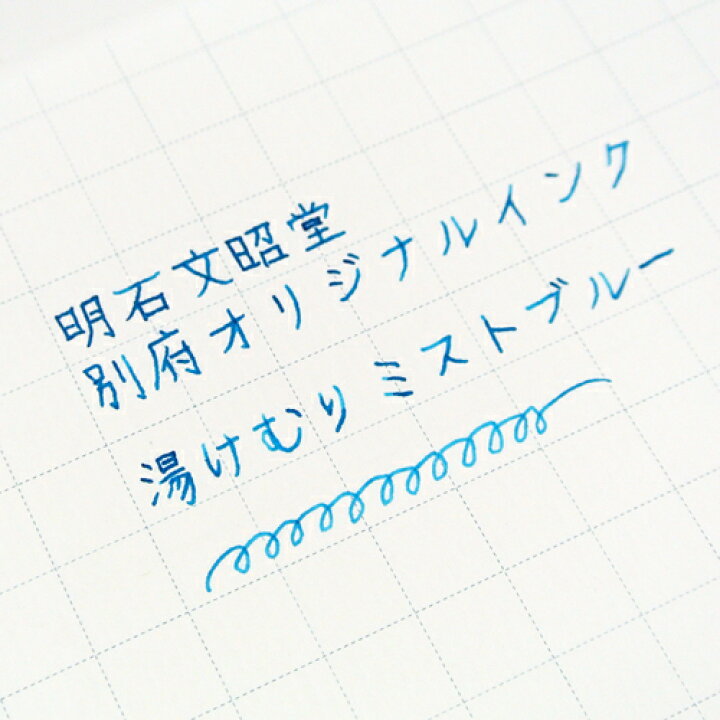 明石文昭堂
別府オリジナルインク
湯けむりミストブルー